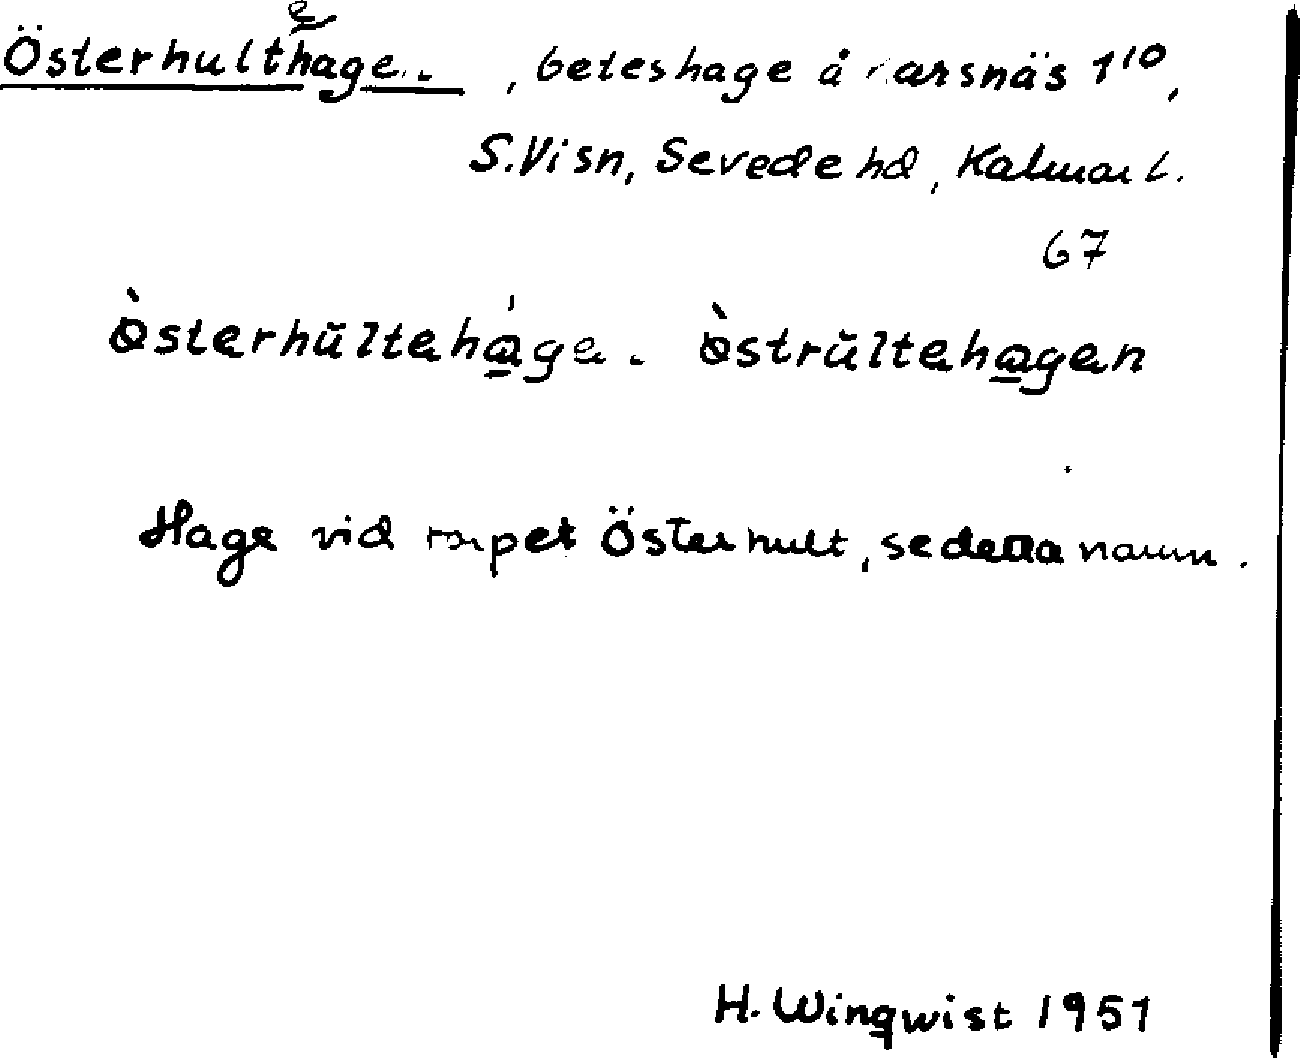 Österhultehage. , beteshage å arsnäs 1¹⁰,
S.Visn, Sevede hd, Kalmar l.
67
österhŭltehage. östrŭltehagen
Hage vid torpet Österhult, se detta namn.
H. Wingwist 1951